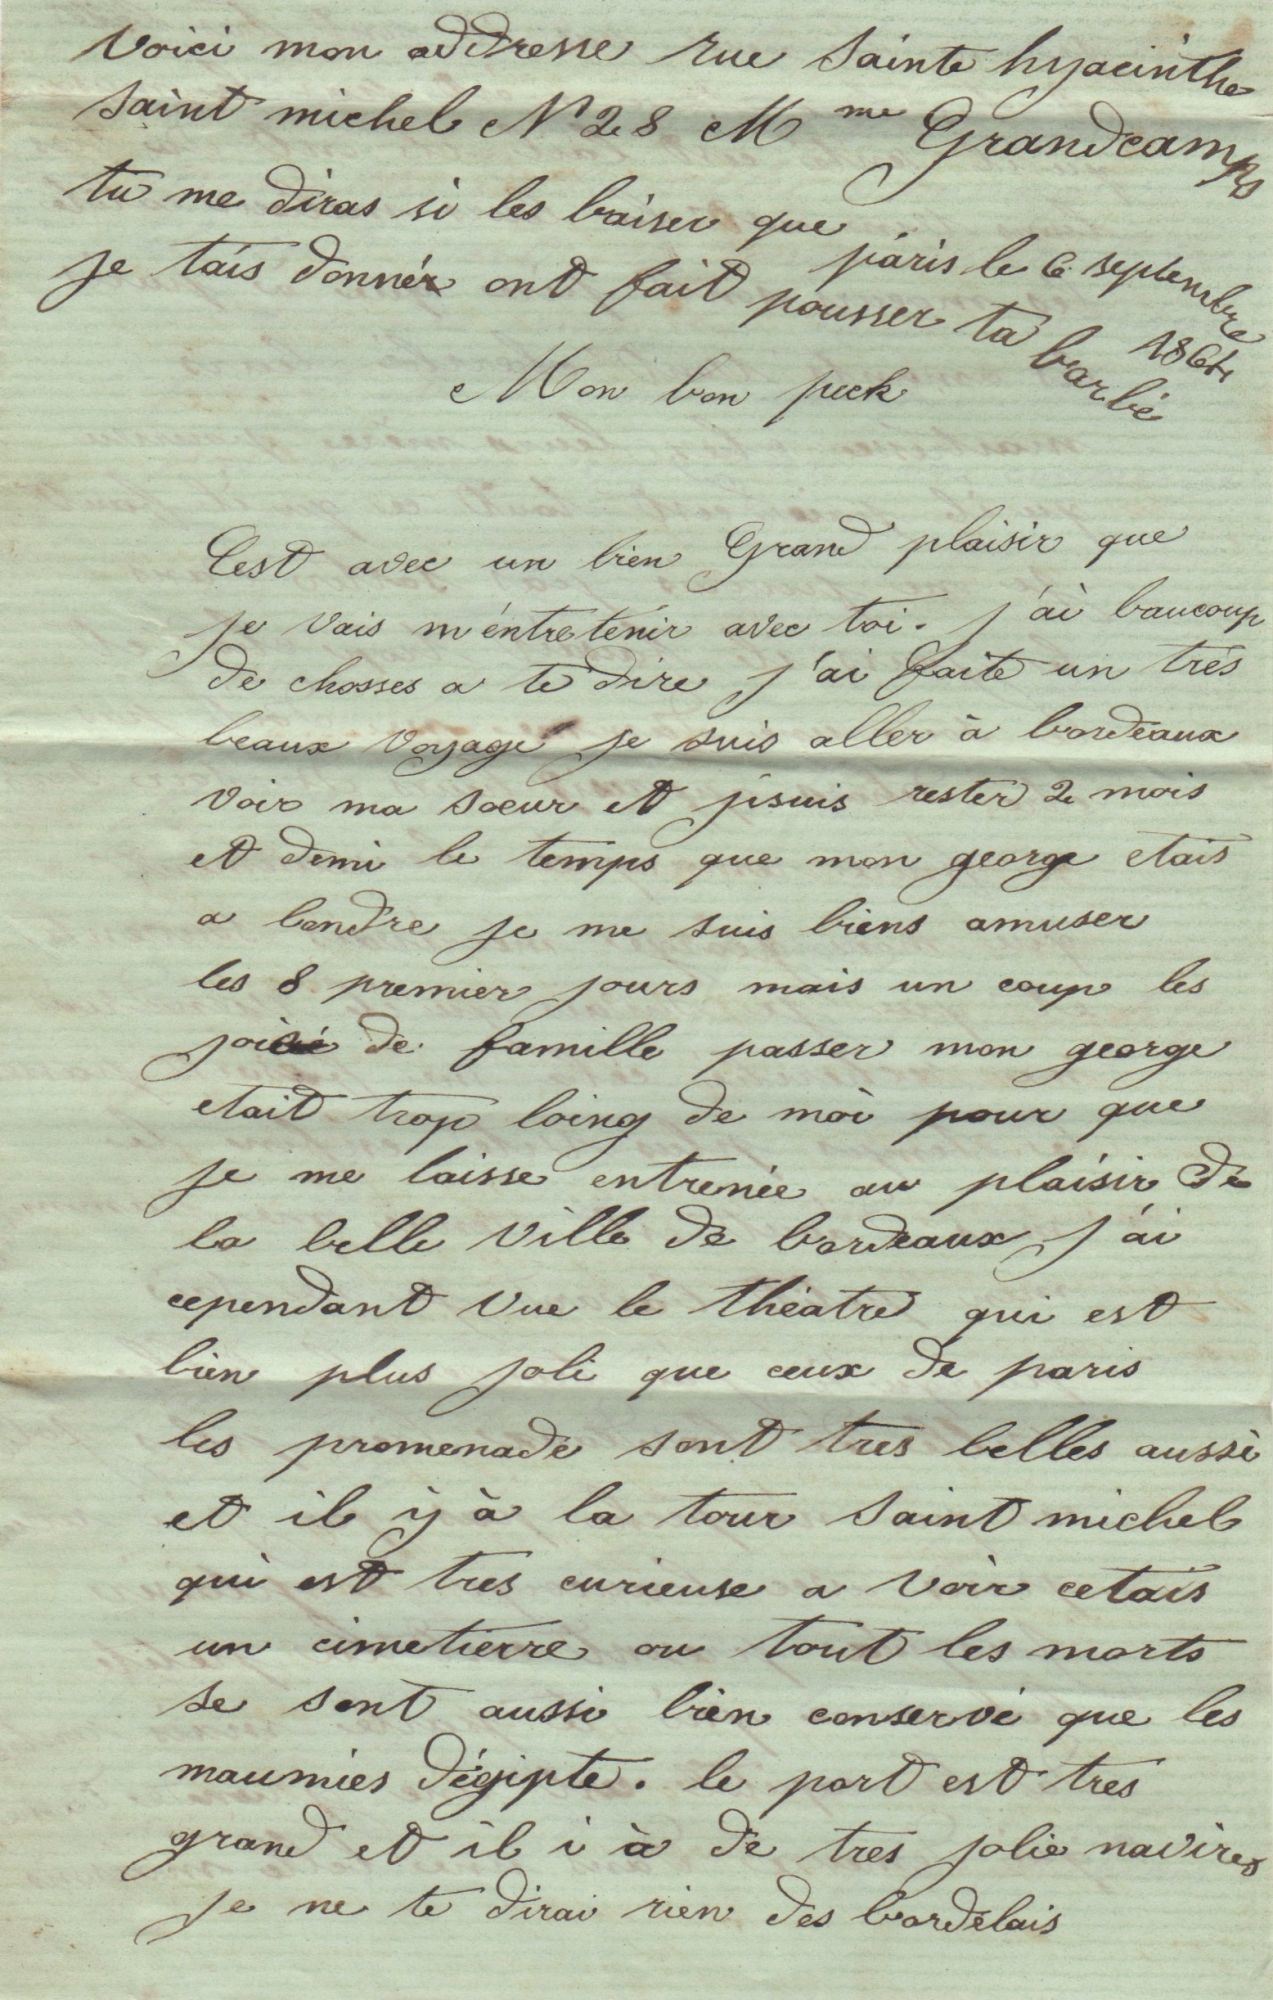 voici mon addresse rue Sainte hyacinthe
saint michel N° 28 Mme Grandcamps
tu me diras si les baiser que
je tais donnér ont fait pousser ta barbe
páris le 6 septembre
1864
Mon bon peck
C'est avec un bien Grand plaisir que
je vais m'éntretenir avec toi. j'ai baucoup
de chosses a te dire j'ai faite un trés
beaux voyage je suis aller à bordeaux
voir ma soeur et j'suis rester 2 mois
et demi le temps que mon george etais
a londre je me suis biens amuser
les 8 premier jours mais un coup les
joie de famille passer mon george
etait trop loing de moi pour que
je me laisse entrenée au plaisir de
la belle ville de bordeaux j'ai
cependant vue le théatre qui est
bien plus joli que ceux de paris
les promenade sont tres belles aussi
et il y à la tour Saint michel
qui est tres curieuse a voir cetais
un cimetierre ou tout les morts
se sont aussi bien conservé que les
maumies dégipte. le port est tres
grand et il i à de tres jolie navires
je ne te dirai rien des bordelais